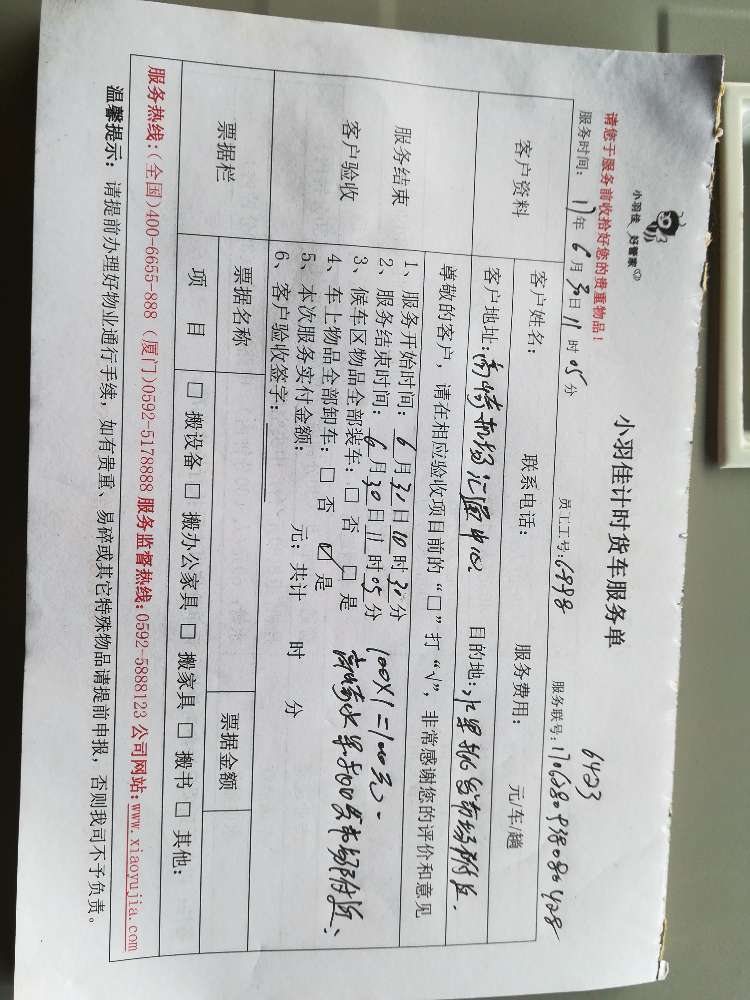 小羽佳 好管家
小羽佳计时货车服务单
6423
请您于服务前收拾好您的贵重物品!
服务时间: 17年6月30日11时05分 员工工号: 6998 服务联号: 1706280938080428
客户资料 客户姓名: 联系电话: 服务费用: 元/车/趟
客户地址: 高崎机场汇通中心 目的地: 水果批发市场附近.
服务结束
客户验收
尊敬的客户,请在相应验收项目前的“□”打“√”,非常感谢您的评价和意见
1、服务开始时间: 6月30日10时30分 100X1=100元.
2、服务结束时间: 6月30日11时05分 高崎水果批发市场附近、
3、候车区物品全部装车: □ 否 □ 是
4、车上物品全部卸车: □ 否 ☑ 是
5、本次服务实付金额: 元;共计 时 分
6、客户验收签字:
票据栏 票据名称 票据金额
项 目 □ 搬设备 □ 搬办公家具 □ 搬家具 □ 搬书 □ 其他:
服务热线:(全国)400-6655-888 (厦门)0592-5178888 服务监督热线:0592-5888123 公司网站:www.xiaoyujia.com
温馨提示: 请提前办理好物业通行手续,如有贵重、易碎或其它特殊物品请提前申报,否则我司不予负责。